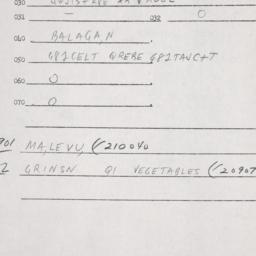 030
031 — 032 O
040 BALAGA,N
050 QP1CELT QREBE QP1TAUC+T
060 O
070 O
901 MA,LEVU,(/210040
2 GRINSN QI VEGETABLES (/20907